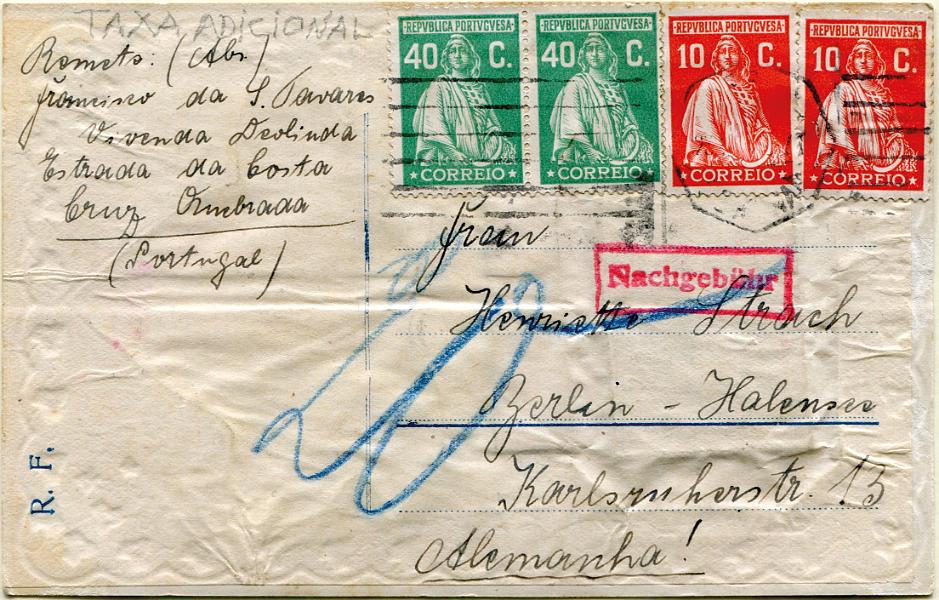 TAXA ADICIONAL
Remets: (Abs)
Francisco da S. Tavares
Vivenda Deolinda
Estrada da Costa
Cruz Quebrada
(Portugal)
REPVBLICA PORTVGVESA
40 C.
CORREIO
REPVBLICA PORTVGVESA
40 C.
CORREIO
REPVBLICA PORTVGVESA
10 C.
CORREIO
REPVBLICA PORTVGVESA
10 C.
CORREIO
Frau
Nachgebühr
Henriette Strach
Berlin - Halensee
Karlsruherstr. 13
Alemanha!
20
R. F.